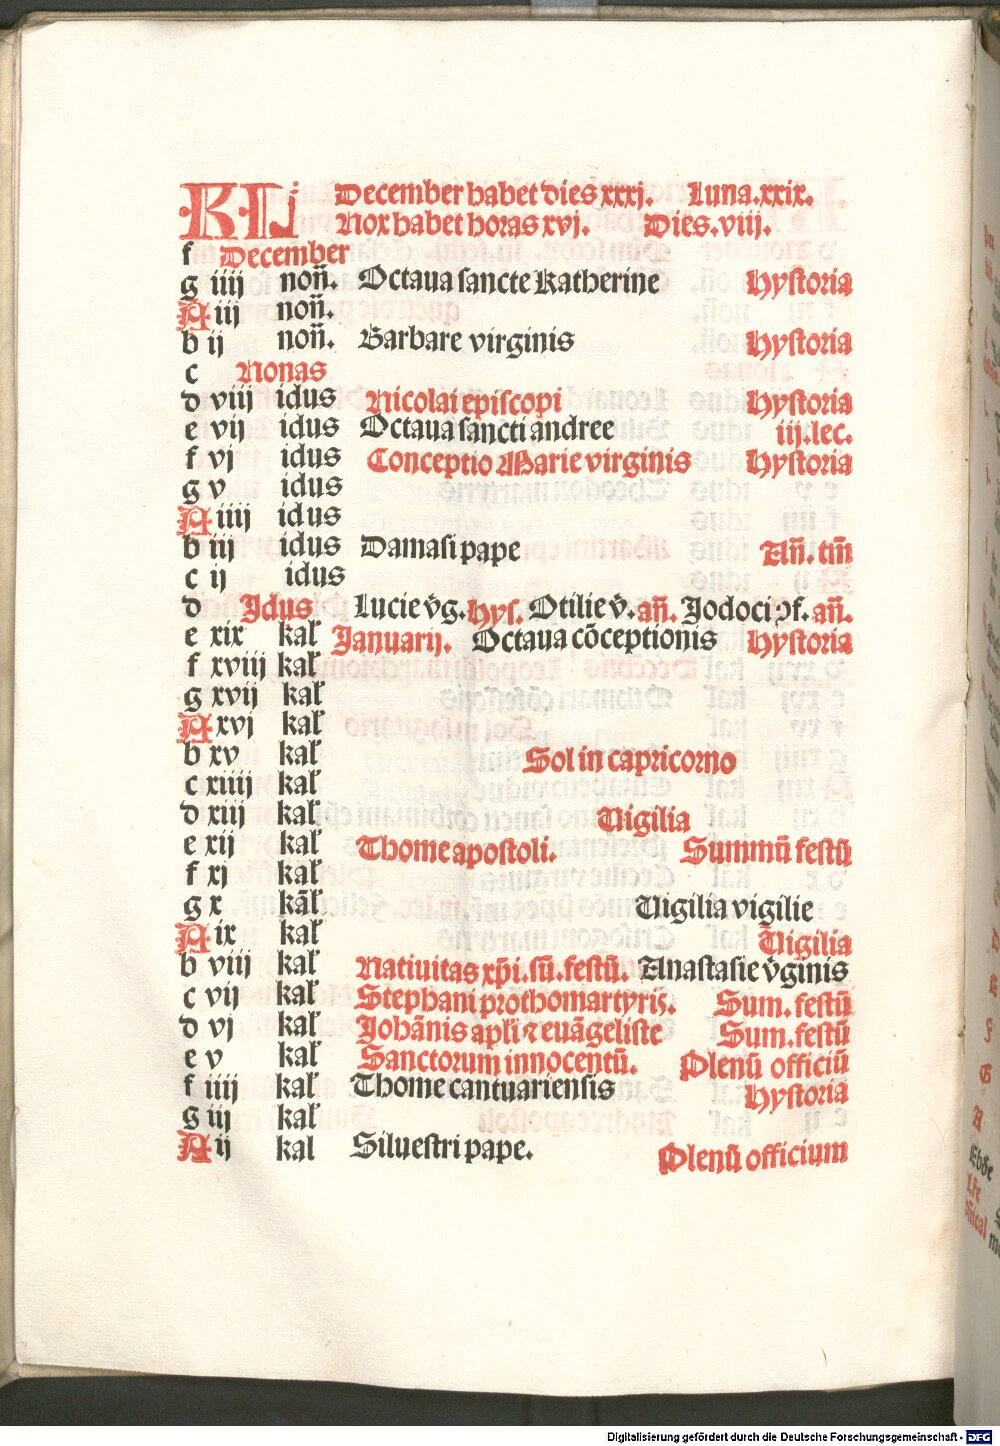 KL December habet dies xxxj. Luna.xxix.
Nox habet horas xvj. Dies.viij.
f December
g iiij non̄. Octaua sancte Katherine Hystoria
A iij non̄.
b ij non̄. Barbare virginis Hystoria
c Nonas
d viij idus Nicolai episcopi Hystoria
e vij idus Octaua sancti andree iij.lec.
f vj idus Conceptio Marie virginis Hystoria
g v idus
A iiij idus
b iij idus Damasi pape An̄. tm̄
c ij idus
d Jdus Lucie v̄g. hys. Otilie v̄. an̄. Jodoci ꝯf. an̄.
e xix kal̄ Januarij. Octaua cōceptionis Hystoria
f xviij kal̄
g xvij kal̄
A xvj kal̄
b xv kal̄ Sol in capricorno
c xiiij kal̄
d xiij kal̄ Uigilia
e xij kal̄ Thome apostoli. Summū festū
f xj kal̄
g x kal̄ Uigilia vigilie
A ix kal̄ Uigilia
b viij kal̄ Natiuitas xp̄i. sū. festū. Anastasie v̄ginis
c vij kal̄ Stephani prothomartyris. Sum. festū
d vj kal̄ Johānis apl̄i ⁊ euāgeliste Sum. festū
e v kal̄ Sanctorum innocentū. Plenū officiū
f iiij kal̄ Thome cantuariensis Hystoria
g iij kal̄
A ij kal Siluestri pape. Plenū officium
Digitalisierung gefördert durch die Deutsche Forschungsgemeinschaft - DFG